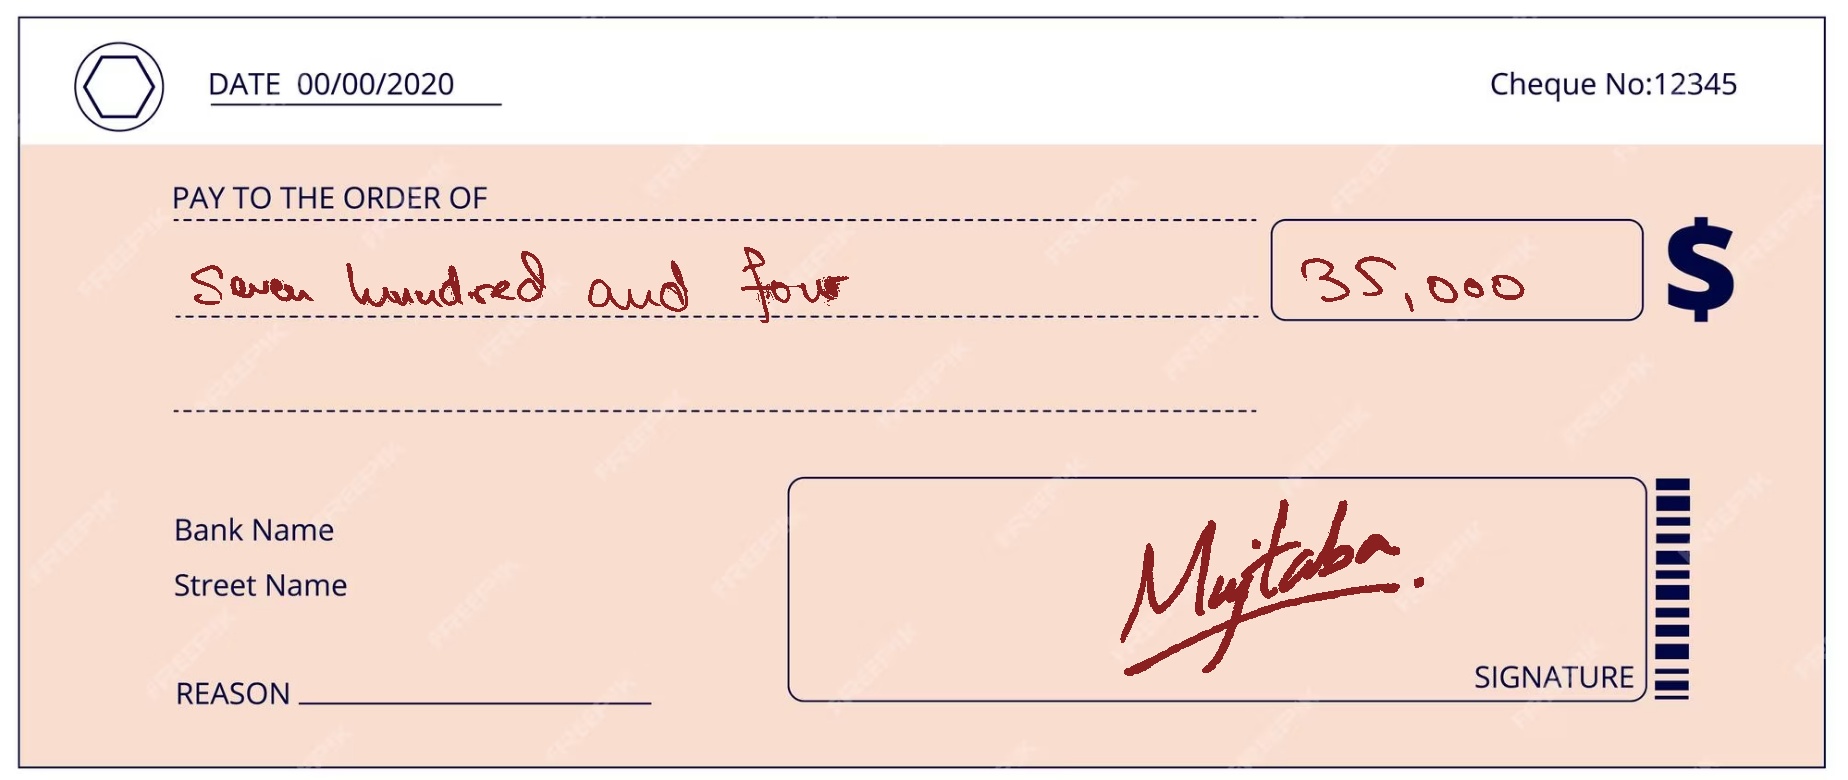 DATE 00/00/2020
Cheque No:12345
PAY TO THE ORDER OF
Seven hundred and four
35,000 $
Bank Name
Street Name
Mujtaba
SIGNATURE
REASON